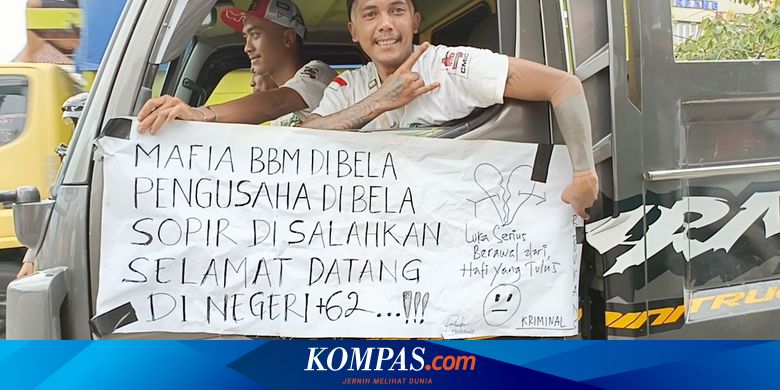 MAFIA BBM DIBELA
PENGUSAHA DIBELA
SOPIR DI SALAHKAN
SELAMAT DATANG
DI NEGERI +62...!!!
Luka Serius
Berawal dari,
Hati yang Tulus
KRIMINAL
KOMPAS.com
JERNIH MELIHAT DUNIA